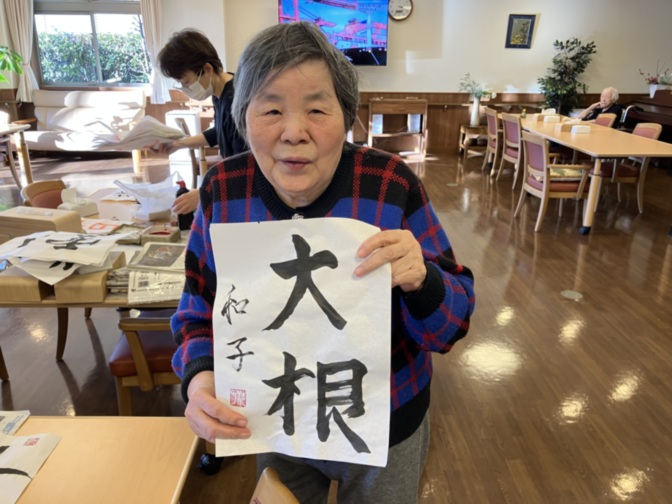 大根
和子